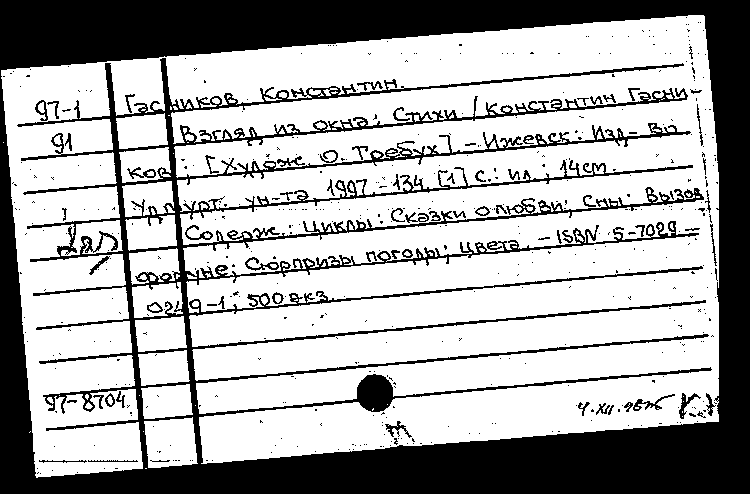 97-1 Гасников, Константин.
91 Взгляд из окна: Стихи / Константин Гасни-
ков; [Худож. О. Требух]. - Ижевск: Изд-во
Удмурт. ун-та, 1997. - 134, [1] с.: ил.; 14 см.
Содерж.: Циклы: Сказки о любви; Сны; Вызов
фортуне; Сюрпризы погоды; Цвета. - ISBN 5-7029-
0249-1; 500 экз.
97-8704